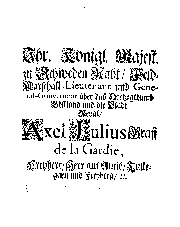 Ihr. Königl. Majest.
in Schweden Raht/ Feld-
Marschall-Lieutenant und Gene-
ral-Gouverneur über das Hertzogthumb
Ehstland und die Stadt
Reval/
Axel Julius Graff
de la Gardie,
Freyherr/ Herr auff